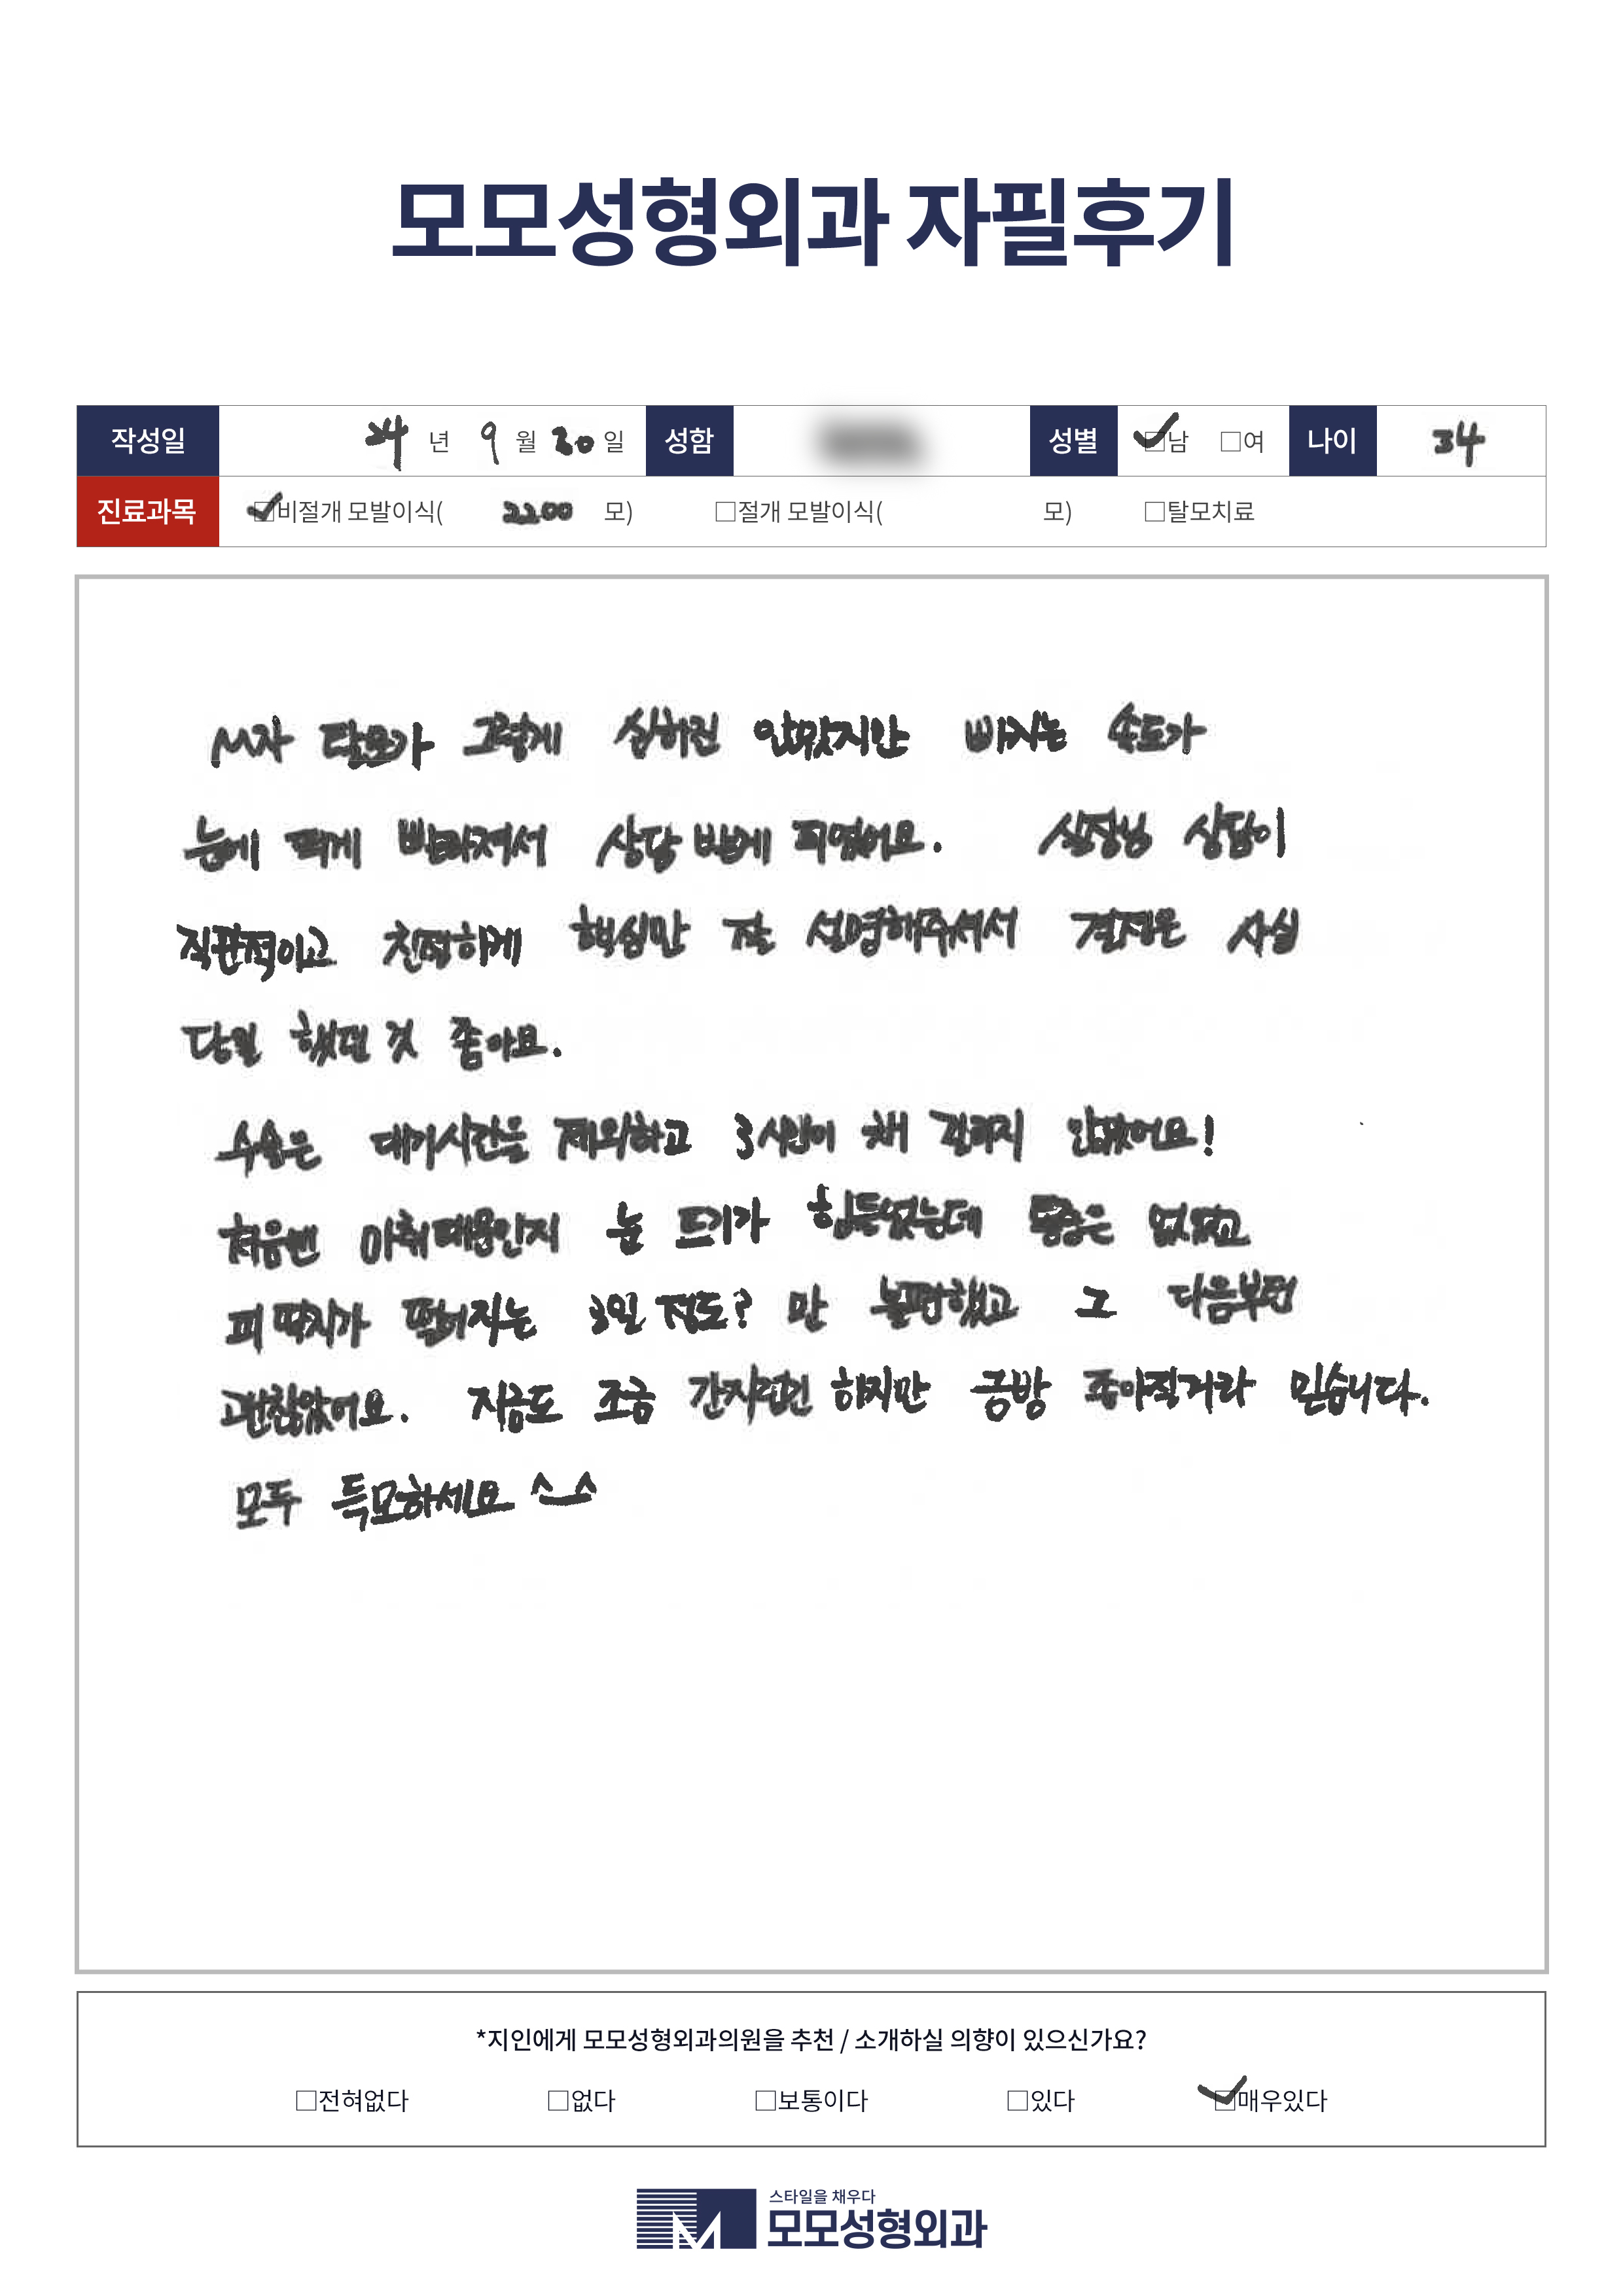 모모성형외과 자필후기
작성일 24 년 9 월 20 일 성함 성별 ☑남 □여 나이 34
진료과목 ☑비절개 모발이식( 2200 모) □절개 모발이식( 모) □탈모치료
M자 탈모가 그렇게 심하진 않았지만 빠지는 속도가
눈에 띄게 빨라져서 상담 받게 되었어요. 실장님 상담이
직관적이고 친절하게 핵심만 잘 설명해주셔서 결정은 사실
당일 했던 것 같아요.
수술은 대기시간을 제외하고 3시간이 채 걸리지 않았어요!
처음엔 마취때문인지 눈 뜨기가 힘들었는데 통증은 없었고
피딱지가 떨어지는 3일 정도? 만 불편했고 그 다음부턴
괜찮았어요. 지금도 조금 간지럽긴 하지만 금방 좋아질거라 믿습니다.
모두 득모하세요 ^_^
*지인에게 모모성형외과의원을 추천 / 소개하실 의향이 있으신가요?
□전혀없다 □없다 □보통이다 □있다 ☑매우있다
스타일을 채우다
모모성형외과